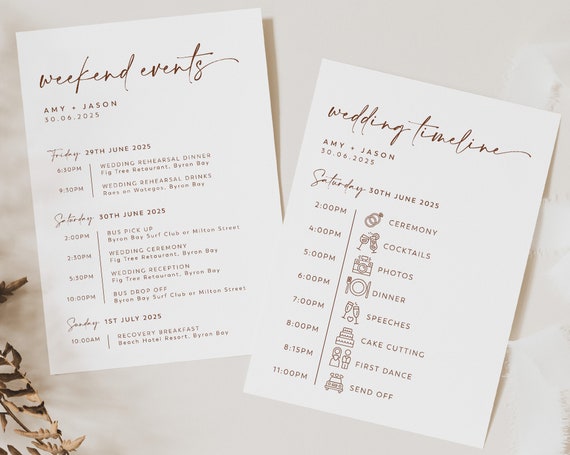 weekend events
AMY + JASON
30.06.2025
Friday 29TH JUNE 2025
6:30PM WEDDING REHEARSAL DINNER
Fig Tree Restaurant, Byron Bay
9:30PM WEDDING REHEARSAL DRINKS
Raes on Wategos, Byron Bay
Saturday 30TH JUNE 2025
2:00PM BUS PICK UP
Byron Bay Surf Club or Milton Street
2:30PM WEDDING CEREMONY
Fig Tree Retaurant, Byron Bay
5:30PM WEDDING RECEPTION
Fig Tree Retaurant, Byron Bay
10:00PM BUS DROP OFF
Byron Bay Surf Club or Milton Street
Sunday 1ST JULY 2025
10:00AM RECOVERY BREAKFAST
Beach Hotel Resort, Byron Bay
wedding timeline
AMY + JASON
30.06.2025
Saturday 30TH JUNE 2025
2:00PM CEREMONY
4:00PM COCKTAILS
5:00PM PHOTOS
6:00PM DINNER
7:00PM SPEECHES
8:00PM CAKE CUTTING
8:15PM FIRST DANCE
11:00PM SEND OFF